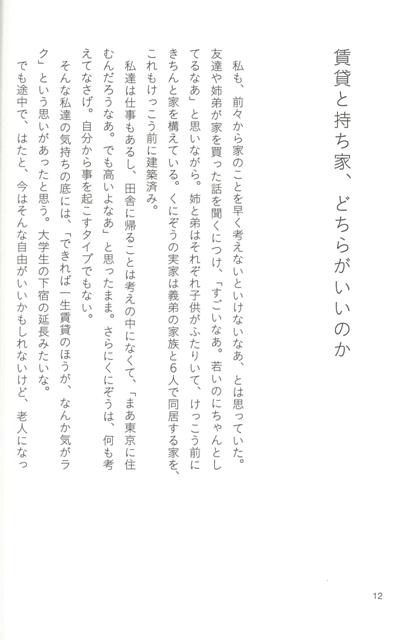 賃貸と持ち家、どちらがいいのか
私も、前々から家のことを早く考えないといけないなあ、とは思っていた。
友達や姉弟が家を買った話を聞くにつけ、「すごいなあ。若いのにちゃんとし
てるなあ」と思いながら。姉と弟はそれぞれ子供がふたりいて、けっこう前に
きちんと家を構えている。くにぞうの実家は義弟の家族と6人で同居する家を、
これもけっこう前に建築済み。
私達は仕事もあるし、田舎に帰ることは考えの中になくて、「まあ東京に住
むんだろうなあ。でも高いよなあ」と思ったまま。さらにくにぞうは、何も考
えてなさげ。自分から事を起こすタイプでもない。
そんな私達の気持ちの底には、「できれば一生賃貸のほうが、なんか気がラ
ク」という思いがあったと思う。大学生の下宿の延長みたいな。
でも途中で、はたと、今はそんな自由がいいかもしれないけど、老人になっ
12